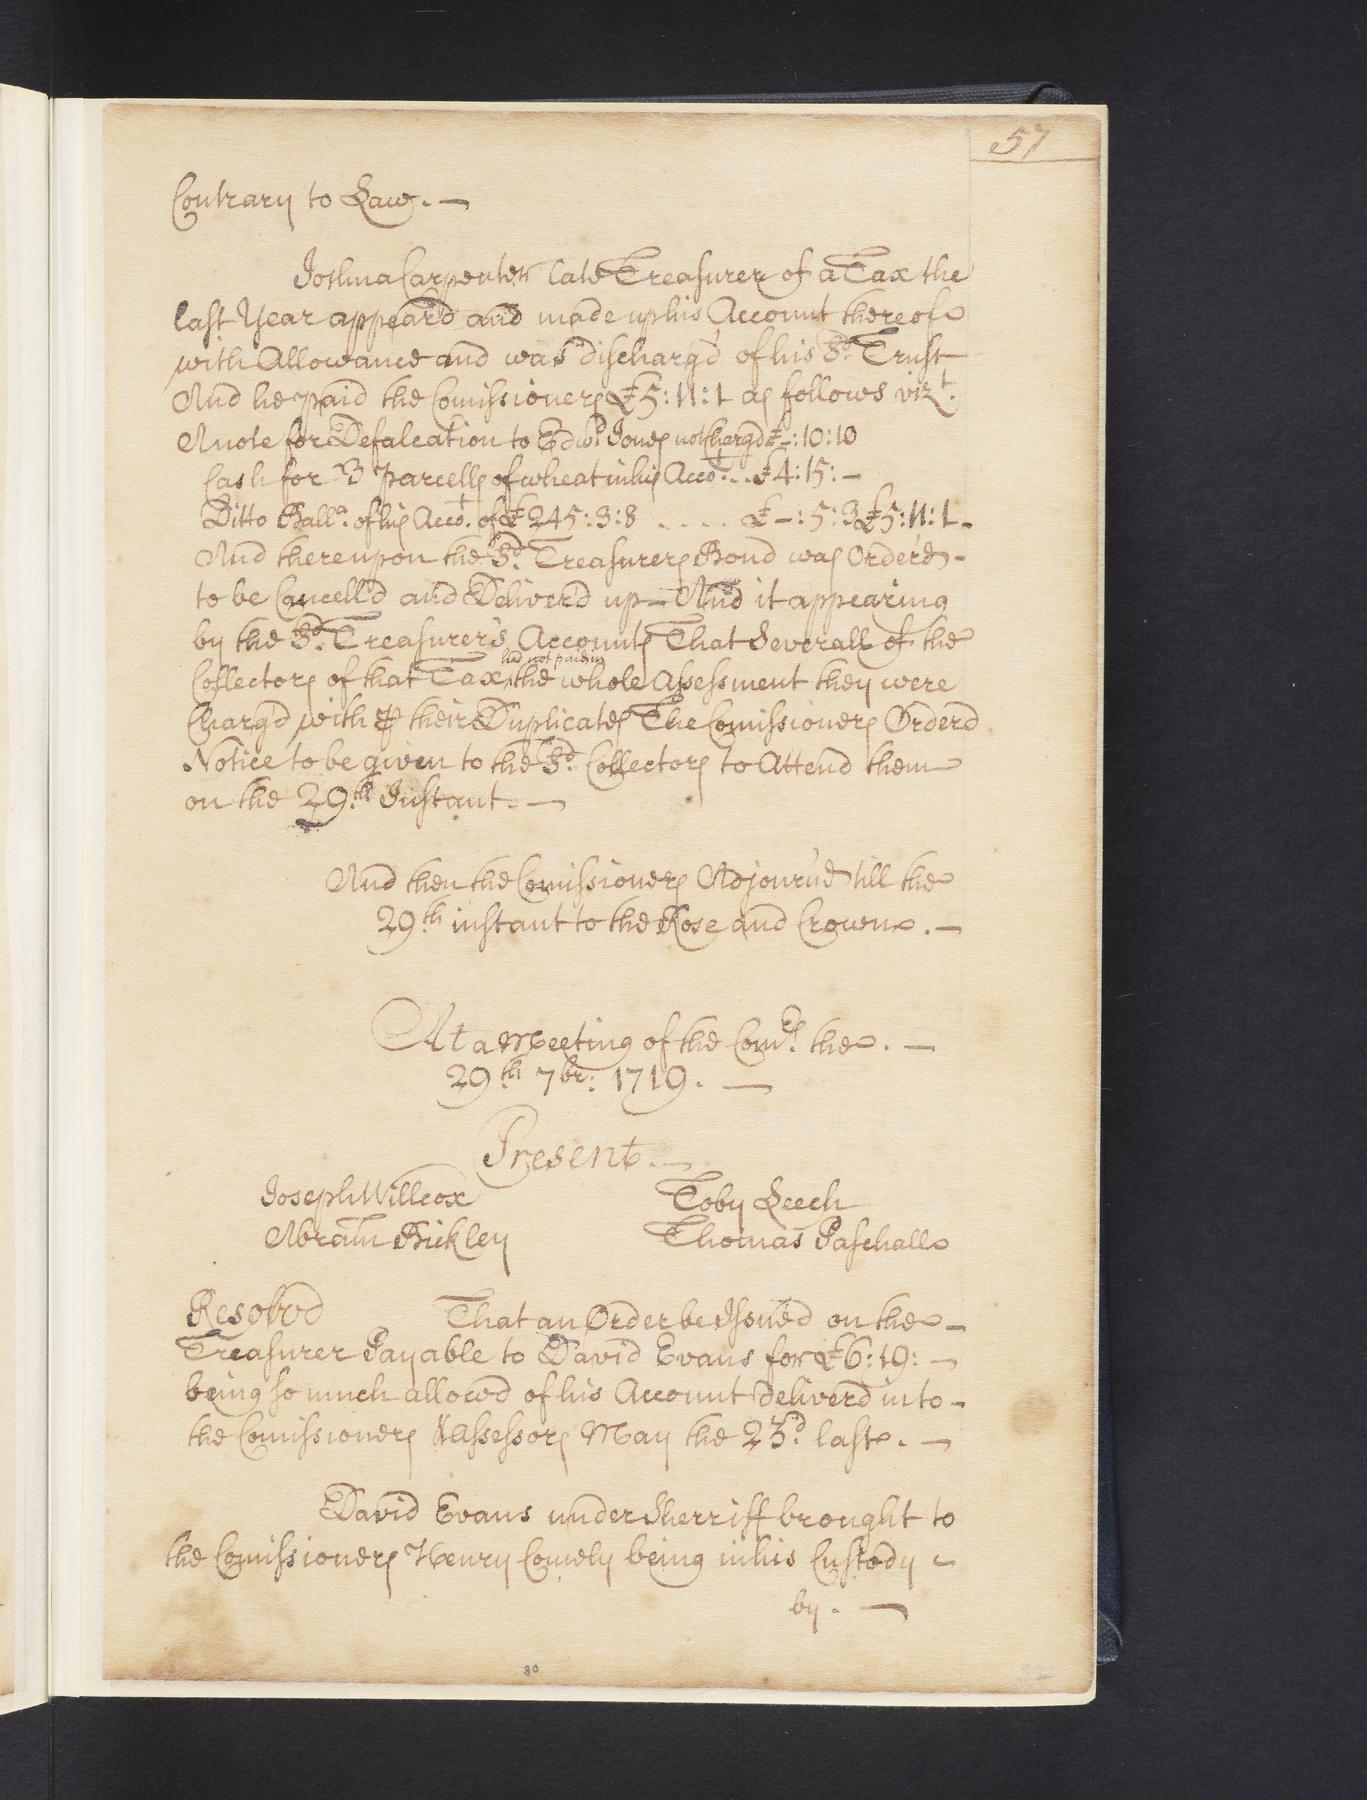 57
Contrary to Law. —
Joshua Carpenter late Treasurer of a Tax the
last Year appear'd and made up his Account thereof
with Allowance and was discharg'd of his Sd. Trust
And he paid the Comissioners £5:11:1 as follows vizt.
A note for Defalcation to Edwd. Jones not Charg'd £–:10:10
Cash for 3 Parcells of wheat in his Accot. . . £4:15:–
Ditto Balla. of his Accot. of £245:3:8 . . . . £–:5:3 £5:11:1.
And thereupon the Sd. Treasurers Bond was Order'd -
to be Cancell'd and Deliver'd up – And it appearing
by the Sd. Treasurer's Accounts That Severall of the
had not paid in
Collectors of that Tax ‸ the whole Assessment they were
Charg'd with ⅌ their Duplicates The Comissioners Orderd
Notice to be given to the Sd. Collectors to Attend them
on the 29th. Instant. —
And then the Comissioners Adjourn'd till the
29th. instant to the Rose and Crown. —
At a Meeting of the Comrs. the. —
29th. 7br: 1719. —
Present. —
Joseph Willcox Toby Leech
Abram Bickley Thomas Paschall
Resolvd That an Order be Issued on the –
Treasurer Payable to David Evans for £6:19:–
being so much allowd of his Account deliverd in to –
the Comissioners & Assessors May the 23d. last. —
David Evans under Sherriff brought to
the Comissioners Henry Comely being in his Custody
by. —
30